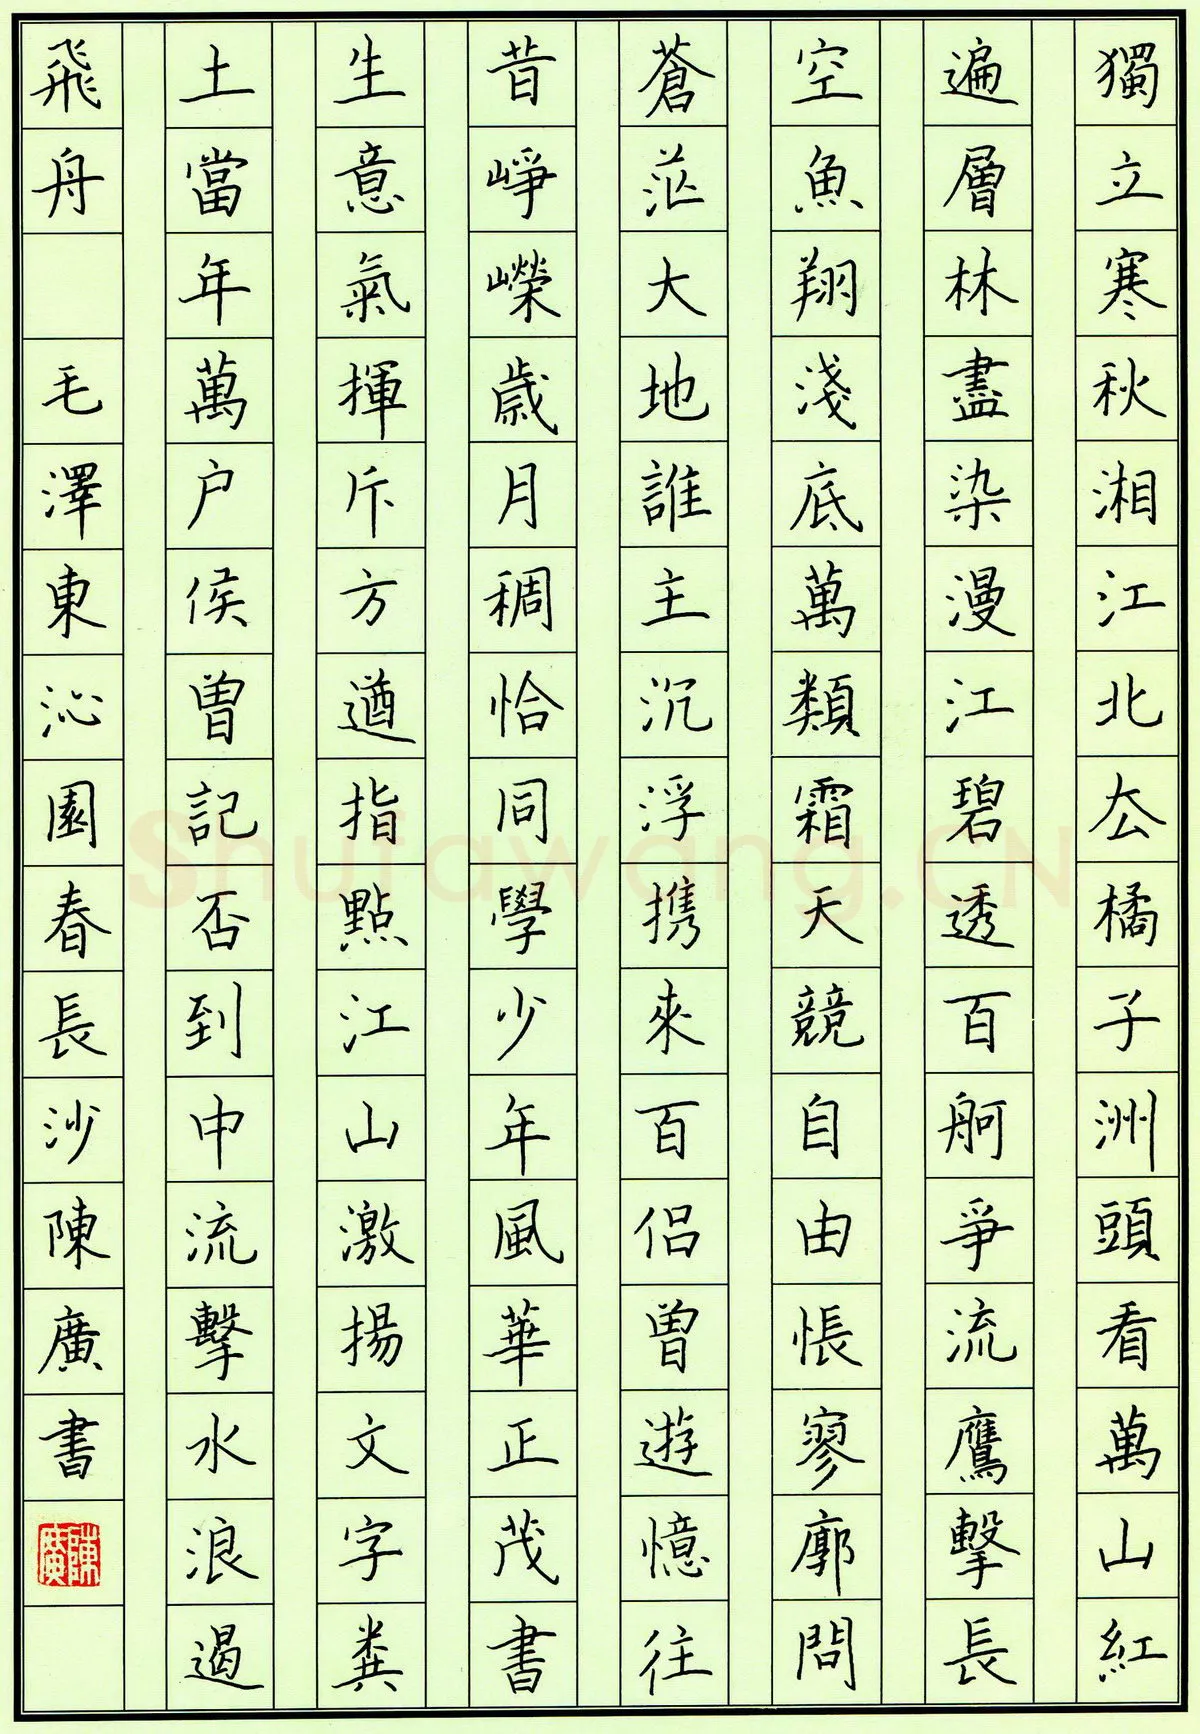 獨立寒秋湘江北厺橘子洲頭看萬山紅
遍層林盡染漫江碧透百舸爭流鷹擊長
空魚翔淺底萬類霜天競自由悵寥廓問
蒼茫大地誰主沉浮携來百侣曾遊憶往
昔崢嶸歲月稠恰同學少年風華正茂書
生意氣揮斥方遒指點江山激揚文字糞
土當年萬户侯曾記否到中流擊水浪遏
飛舟 毛澤東沁園春長沙陳廣書
陳廣
Shufawang.CN